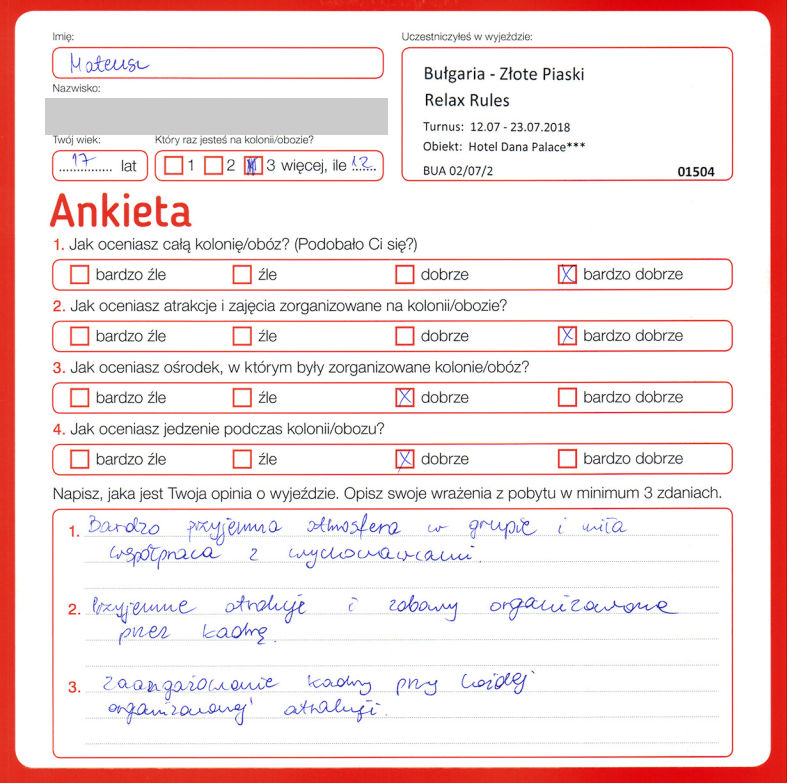 Imię:
Mateusz
Nazwisko:
Twój wiek:
17 lat
Który raz jesteś na kolonii/obozie?
1 2 3 więcej, ile 12
Uczestniczyłeś w wyjeździe:
Bułgaria - Złote Piaski
Relax Rules
Turnus: 12.07 - 23.07.2018
Obiekt: Hotel Dana Palace***
BUA 02/07/2 01504
Ankieta
1. Jak oceniasz całą kolonię/obóz? (Podobało Ci się?)
bardzo źle źle dobrze bardzo dobrze
2. Jak oceniasz atrakcje i zajęcia zorganizowane na kolonii/obozie?
bardzo źle źle dobrze bardzo dobrze
3. Jak oceniasz ośrodek, w którym były zorganizowane kolonie/obóz?
bardzo źle źle dobrze bardzo dobrze
4. Jak oceniasz jedzenie podczas kolonii/obozu?
bardzo źle źle dobrze bardzo dobrze
Napisz, jaka jest Twoja opinia o wyjeździe. Opisz swoje wrażenia z pobytu w minimum 3 zdaniach.
1. Bardzo przyjemna atmosfera w grupie i miła
współpraca z wychowawcami.
2. Przyjemne atrakcje i zabawy organizowane
przez kadrę.
3. Zaangażowanie kadry przy każdej
organizowanej atrakcji.